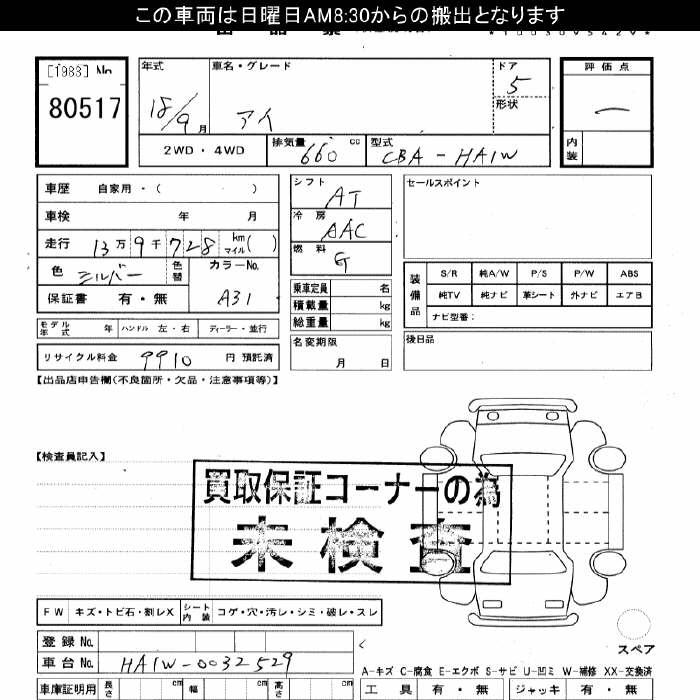 この車両は日曜日AM8:30からの搬出となります
[1983] No.
80517
年式 車名・グレード ドア 評価点
18/9月 アイ 5 ー
形状
2WD・4WD 排気量 660 cc 型式 CBA-HA1W 内装
車歴 自家用・( )
車検 年 月
走行 13万9千728 km マイル( )
色 シルバー 色替 カラーNo. A31
保証書 有・無
モデル年式 年 ハンドル 左・右 ディーラー・並行
リサイクル料金 9910 円 預託済
シフト AT
冷房 AAC
燃料 G
乗車定員 名
積載量 kg
総重量 kg
名変期限 月 日
セールスポイント
装備品 S/R 純A/W P/S P/W ABS
純TV 純ナビ 革シート 外ナビ エアB
ナビ型番:
後日品
【出品店申告欄(不良箇所・欠品・注意事項等)】
【検査員記入】
買取保証コーナーの為
未検査
FW キズ・トビ石・割レX シート内装 コゲ・穴・汚レ・シミ・破レ・スレ
登録No.
車台No. HA1W-0032529
スペア
A-キズ C-腐食 E-エクボ S-サビ U-凹ミ W-補修 XX-交換済
車庫証明用 長さ cm 幅 cm 高さ cm 工具 有・無 ジャッキ 有・無